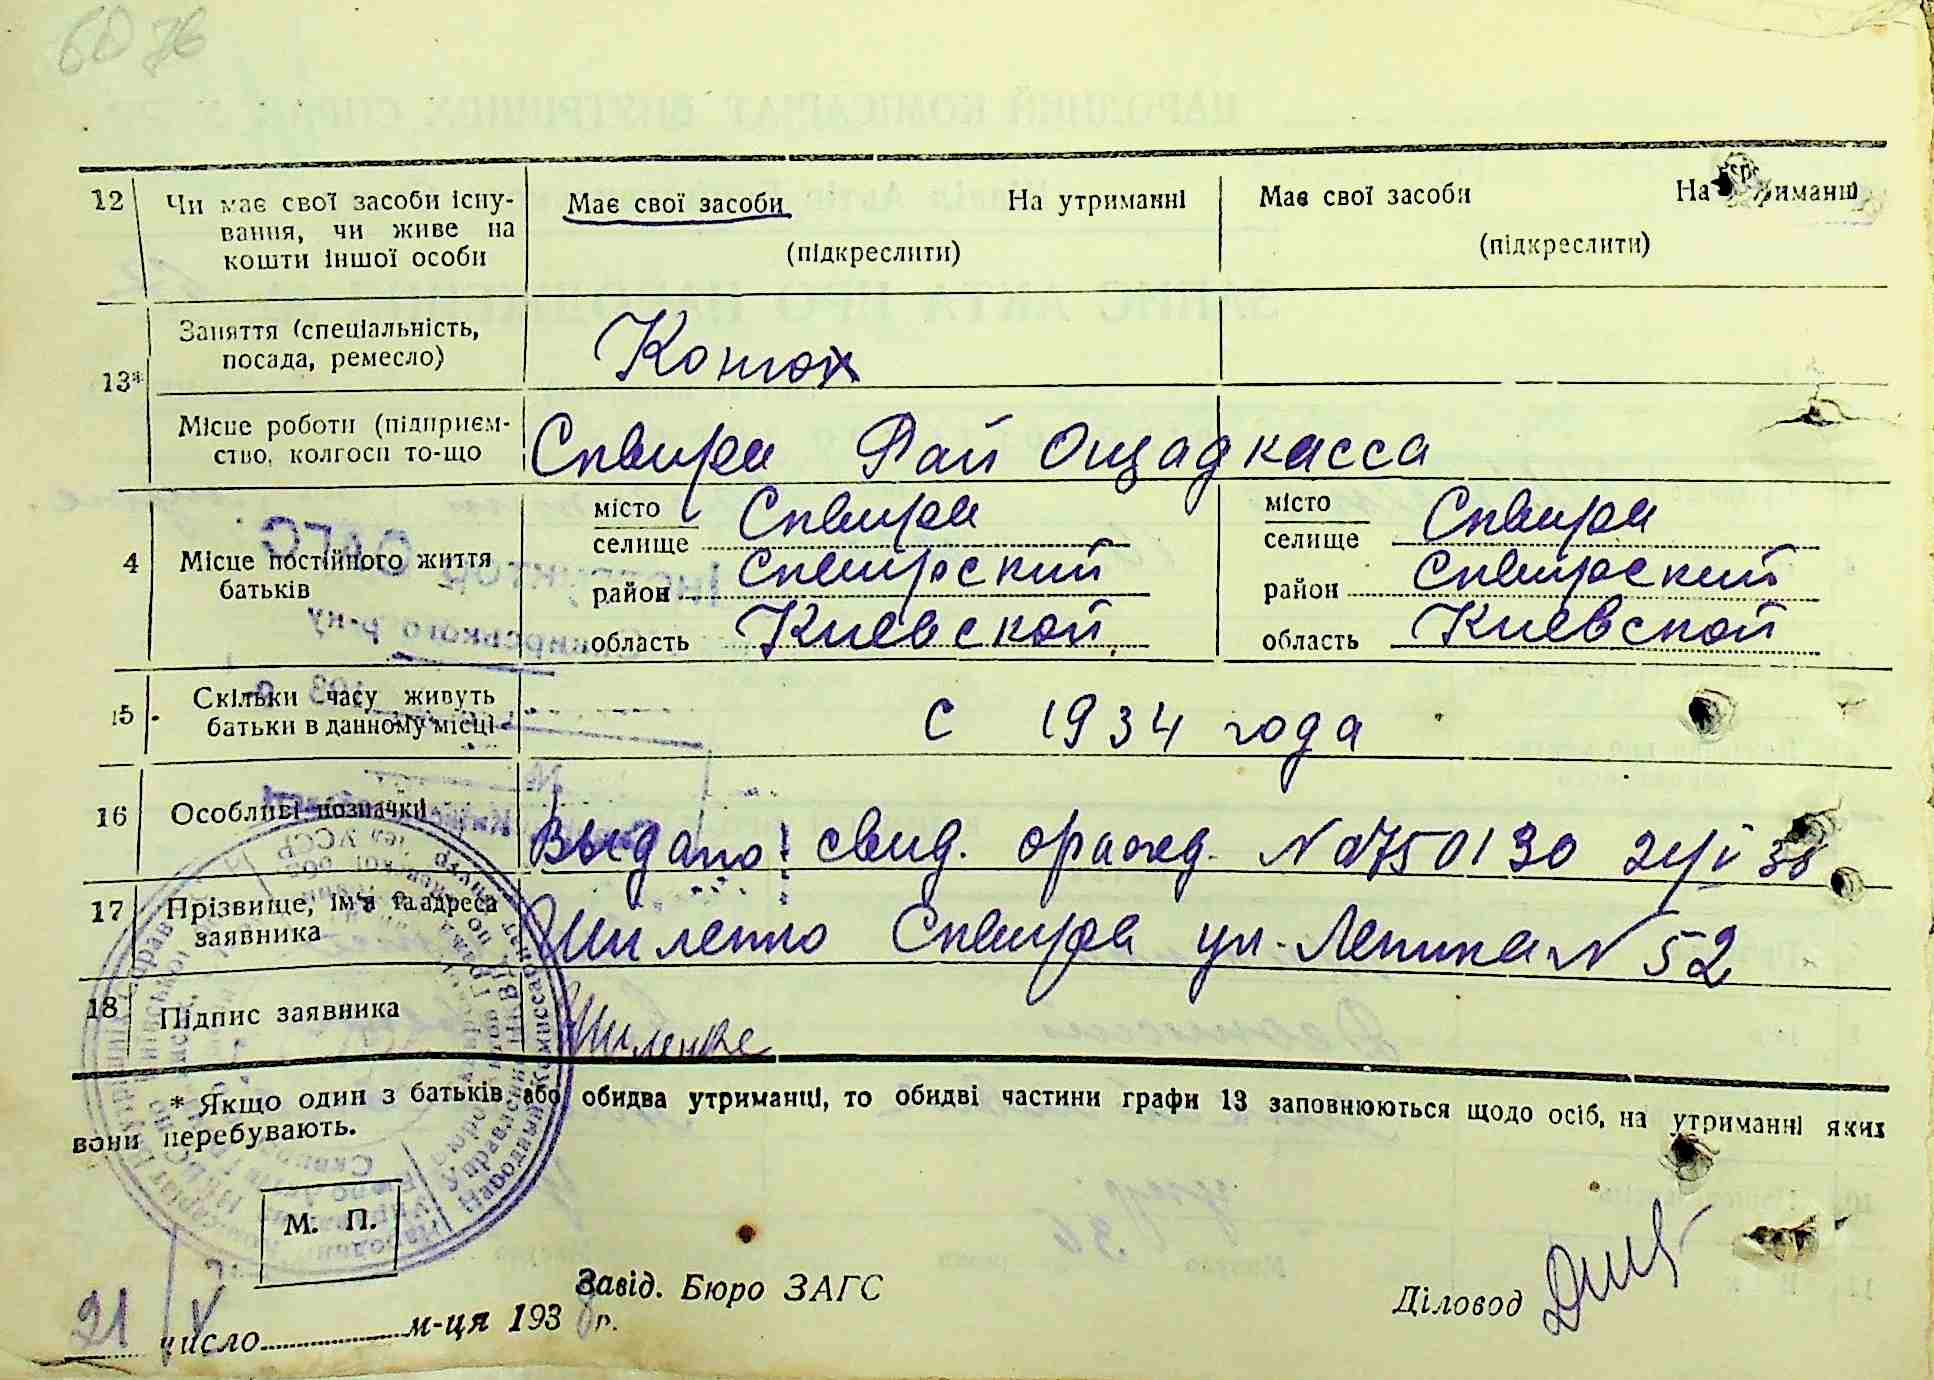 12 Чи має свої засоби існу-
вання, чи живе на
кошти іншої особи
Має свої засоби На утриманні
(підкреслити)
Має свої засоби На утриманні
(підкреслити)
13*
Заняття (спеціальність,
посада, ремесло)
Конюх
Місце роботи (підприєм-
ство, колгосп то-що
Сквира Рай Ощадкасса
4 Місце постійного життя
батьків
місто
селище Сквира
район Сквирский
область Киевской
місто
селище Сквира
район Сквирский
область Киевской
15 Скільки часу живуть
батьки в данному місці
с 1934 года
16 Особливі позначки
Выдано свид. о ражд. № 750130 21/V 38
17 Прізвище, ім'я та адреса
заявника
Шиленко Сквира ул. Ленина № 52
18 Підпис заявника
Шиленко
* Якщо один з батьків, або обидва утриманці, то обидві частини графи 13 заповнюються щодо осіб, на утриманні яких
вони перебувають.
М. П.
Завід. Бюро ЗАГС
Діловод
21/V число м-ця 1938 р.